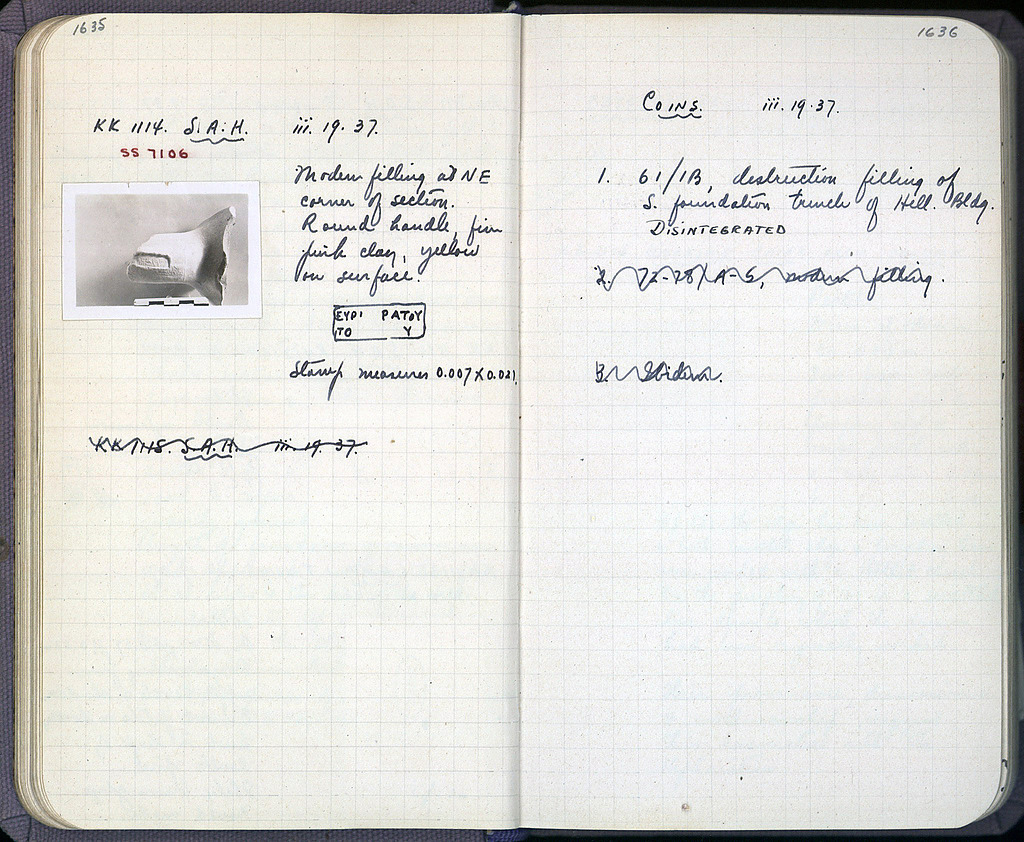 1635
KK 1114. S.A.H. iii. 19. 37.
SS 7106
Modern filling at NE
corner of section.
Round handle, fine
pink clay, yellow
on surface.
ΕΥΡΙ ΡΑΤΟΥ
ΤΟ Υ
Stamp measures 0.007 X 0.021.
KK 1115. S.A.H. iii. 19. 37.
1636
COINS. iii. 19. 37.
1. 61/IB, destruction filling of
S. foundation trench of Hell. Bldg.
DISINTEGRATED
2. 72-78/Α-5, modern filling.
3. Ibidem.